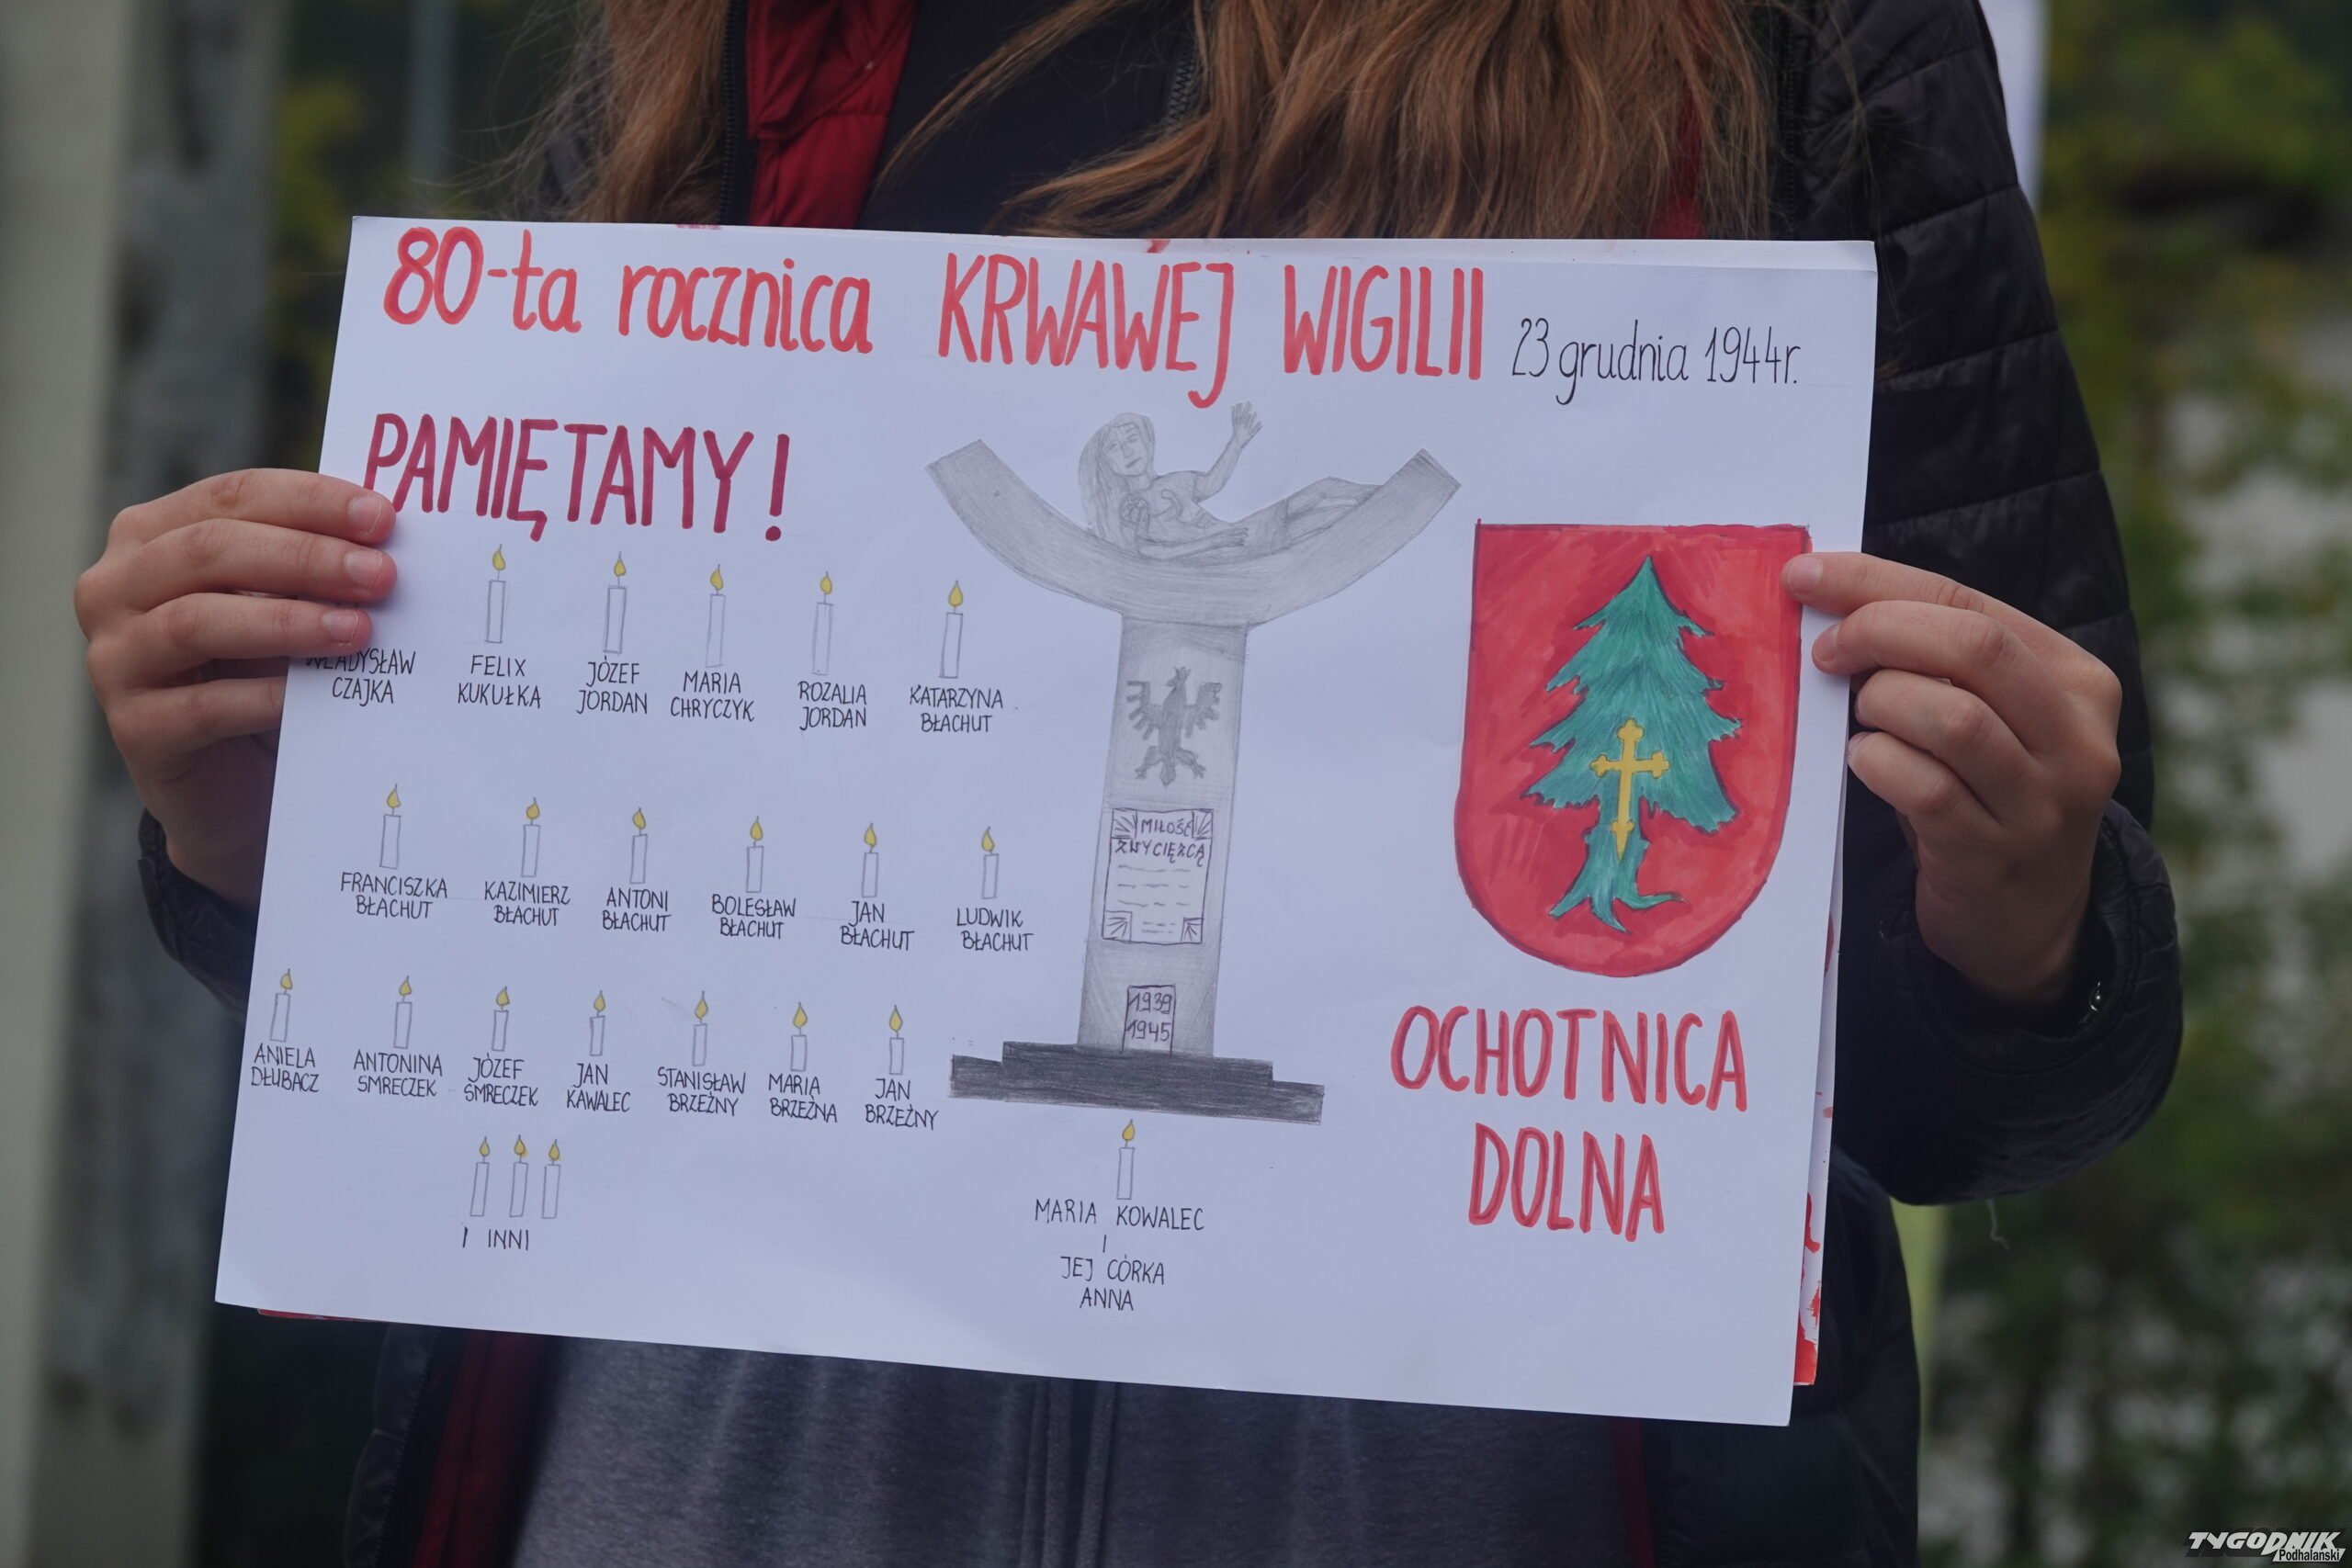 80-ta rocznica KRWAWEJ WIGILII 23 grudnia 1944r.
PAMIĘTAMY!
WŁADYSŁAW
CZAJKA
FELIX
KUKUŁKA
JÓZEF
JORDAN
MARIA
CHRYCZYK
ROZALIA
JORDAN
KATARZYNA
BŁACHUT
FRANCISZKA
BŁACHUT
KAZIMIERZ
BŁACHUT
ANTONI
BŁACHUT
BOLESŁAW
BŁACHUT
JAN
BŁACHUT
LUDWIK
BŁACHUT
ANIELA
DŁUBACZ
ANTONINA
SMRECZEK
JÓZEF
SMRECZEK
JAN
KAWALEC
STANISŁAW
BRZEŻNY
MARIA
BRZEŻNA
JAN
BRZEŻNY
I INNI
MIŁOŚĆ
ZWYCIĘŻCĄ
1939
1945
MARIA KOWALEC
I
JEJ CÓRKA
ANNA
OCHOTNICA
DOLNA
TYGODNIK
Podhalański